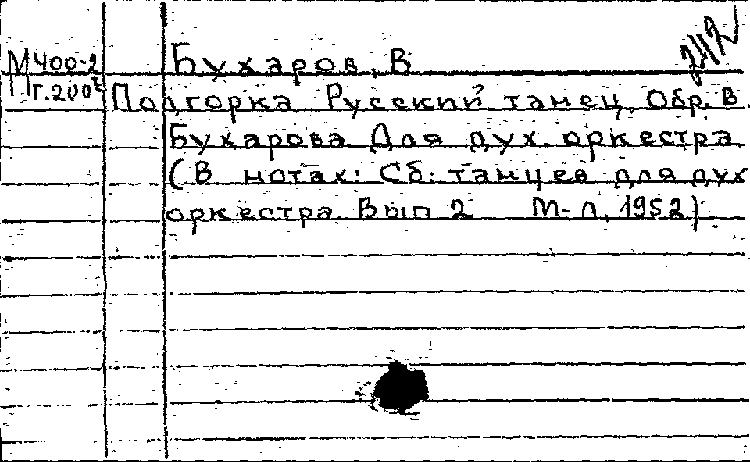 242
М400-2 Бухаров, В
Пг.200г Подгорка Русский танец. Обр. В
Бухарова Для дух. оркестра
(В нотах: Сб. танцев для дух
оркестра. Вып 2 М-Л, 1952)